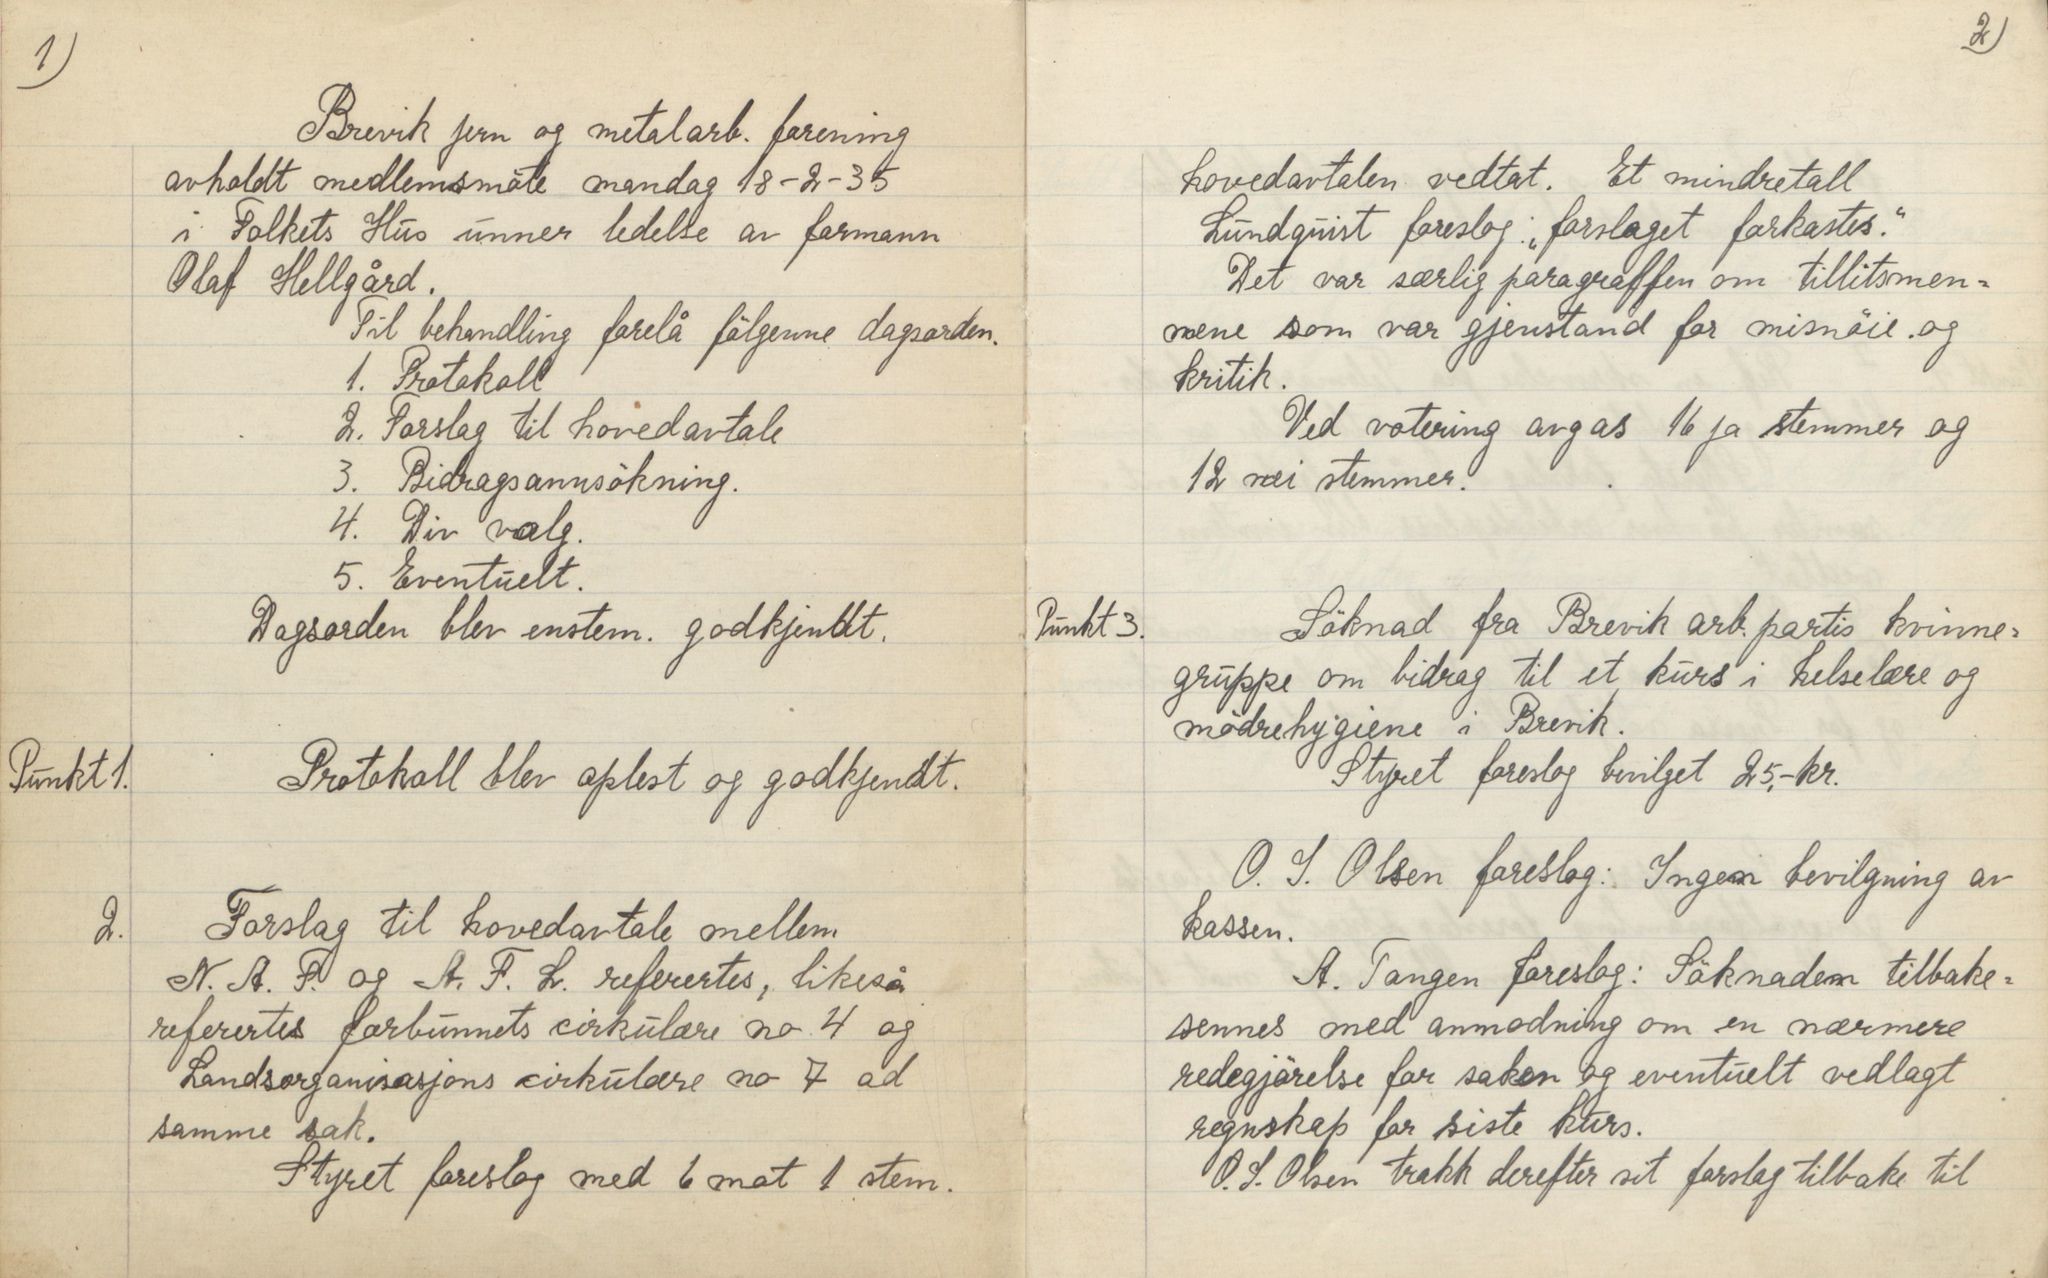 1)
Brevik jern og metalarb. forening
avholdt medlemsmöte mandag 18-2-35
i Folkets Hus unner ledelse av formann
Olaf Hellgård.
Til behandling forelå fölgenne dagsorden.
1. Protokoll
2. Forslag til hovedavtale
3. Bidragsannsökning.
4. Div valg.
5. Eventuelt.
Dagsorden blev enstem. godkjendt.
Punkt 1. Protokoll blev oplest og godkjendt.
2. Forslag til hovedavtale mellem
N. A. F. og A. F. L. referertes, likeså
referertes forbunnets cirkulære no 4 og
Landsorganisasjons cirkulære no 7 ad
samme sak.
Styret foreslog med 6 mot 1 stem.
2)
hovedavtalen vedtat. Et mindretall
Lundquist foreslog: „forslaget forkastes."
Det var særlig paragraffen om tillitsmen=
nene som var gjenstand for misnöie og
kritik.
Ved votering avgas 16 ja stemmer og
12 nei stemmer.
Punkt 3. Söknad fra Brevik arb. partis kvinne=
gruppe om bidrag til et kurs i helselære og
mödrehygiene i Brevik.
Styret foreslog bevilget 25,- kr.
O. S. Olsen foreslog: Ingen bevilgning av
kassen.
A. Tangen foreslog: Söknaden tilbake=
sennes med anmodning om en nærmere
redegjörelse for saken og eventuelt vedlagt
regnskap for siste kurs.
O. S. Olsen trakk derefter sit forslag tilbake til